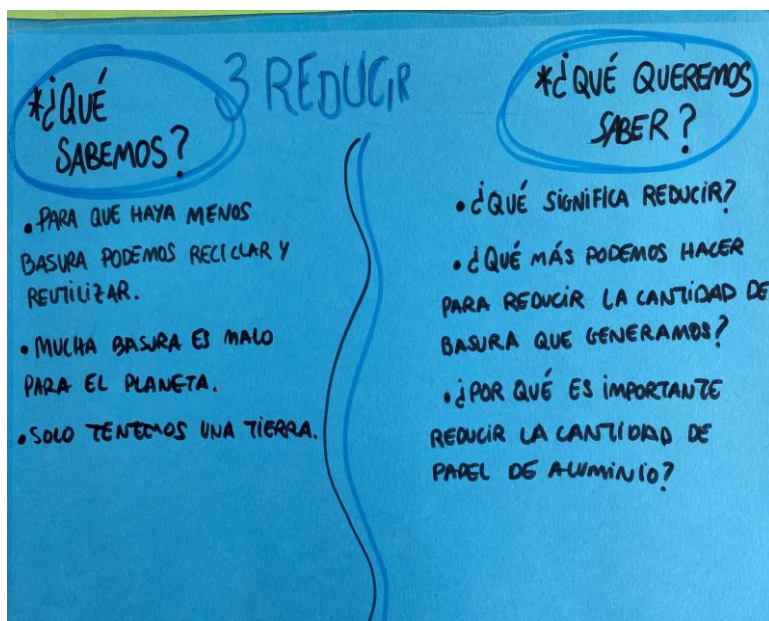 3 REDUCIR
*¿QUÉ
SABEMOS?
• PARA QUE HAYA MENOS
BASURA PODEMOS RECICLAR Y
REUTILIZAR.
• MUCHA BASURA ES MALO
PARA EL PLANETA.
• SOLO TENEMOS UNA TIERRA.
*¿QUÉ QUEREMOS
SABER?
• ¿QUÉ SIGNIFICA REDUCIR?
• ¿QUÉ MÁS PODEMOS HACER
PARA REDUCIR LA CANTIDAD DE
BASURA QUE GENERAMOS?
• ¿POR QUÉ ES IMPORTANTE
REDUCIR LA CANTIDAD DE
PAPEL DE ALUMINIO?